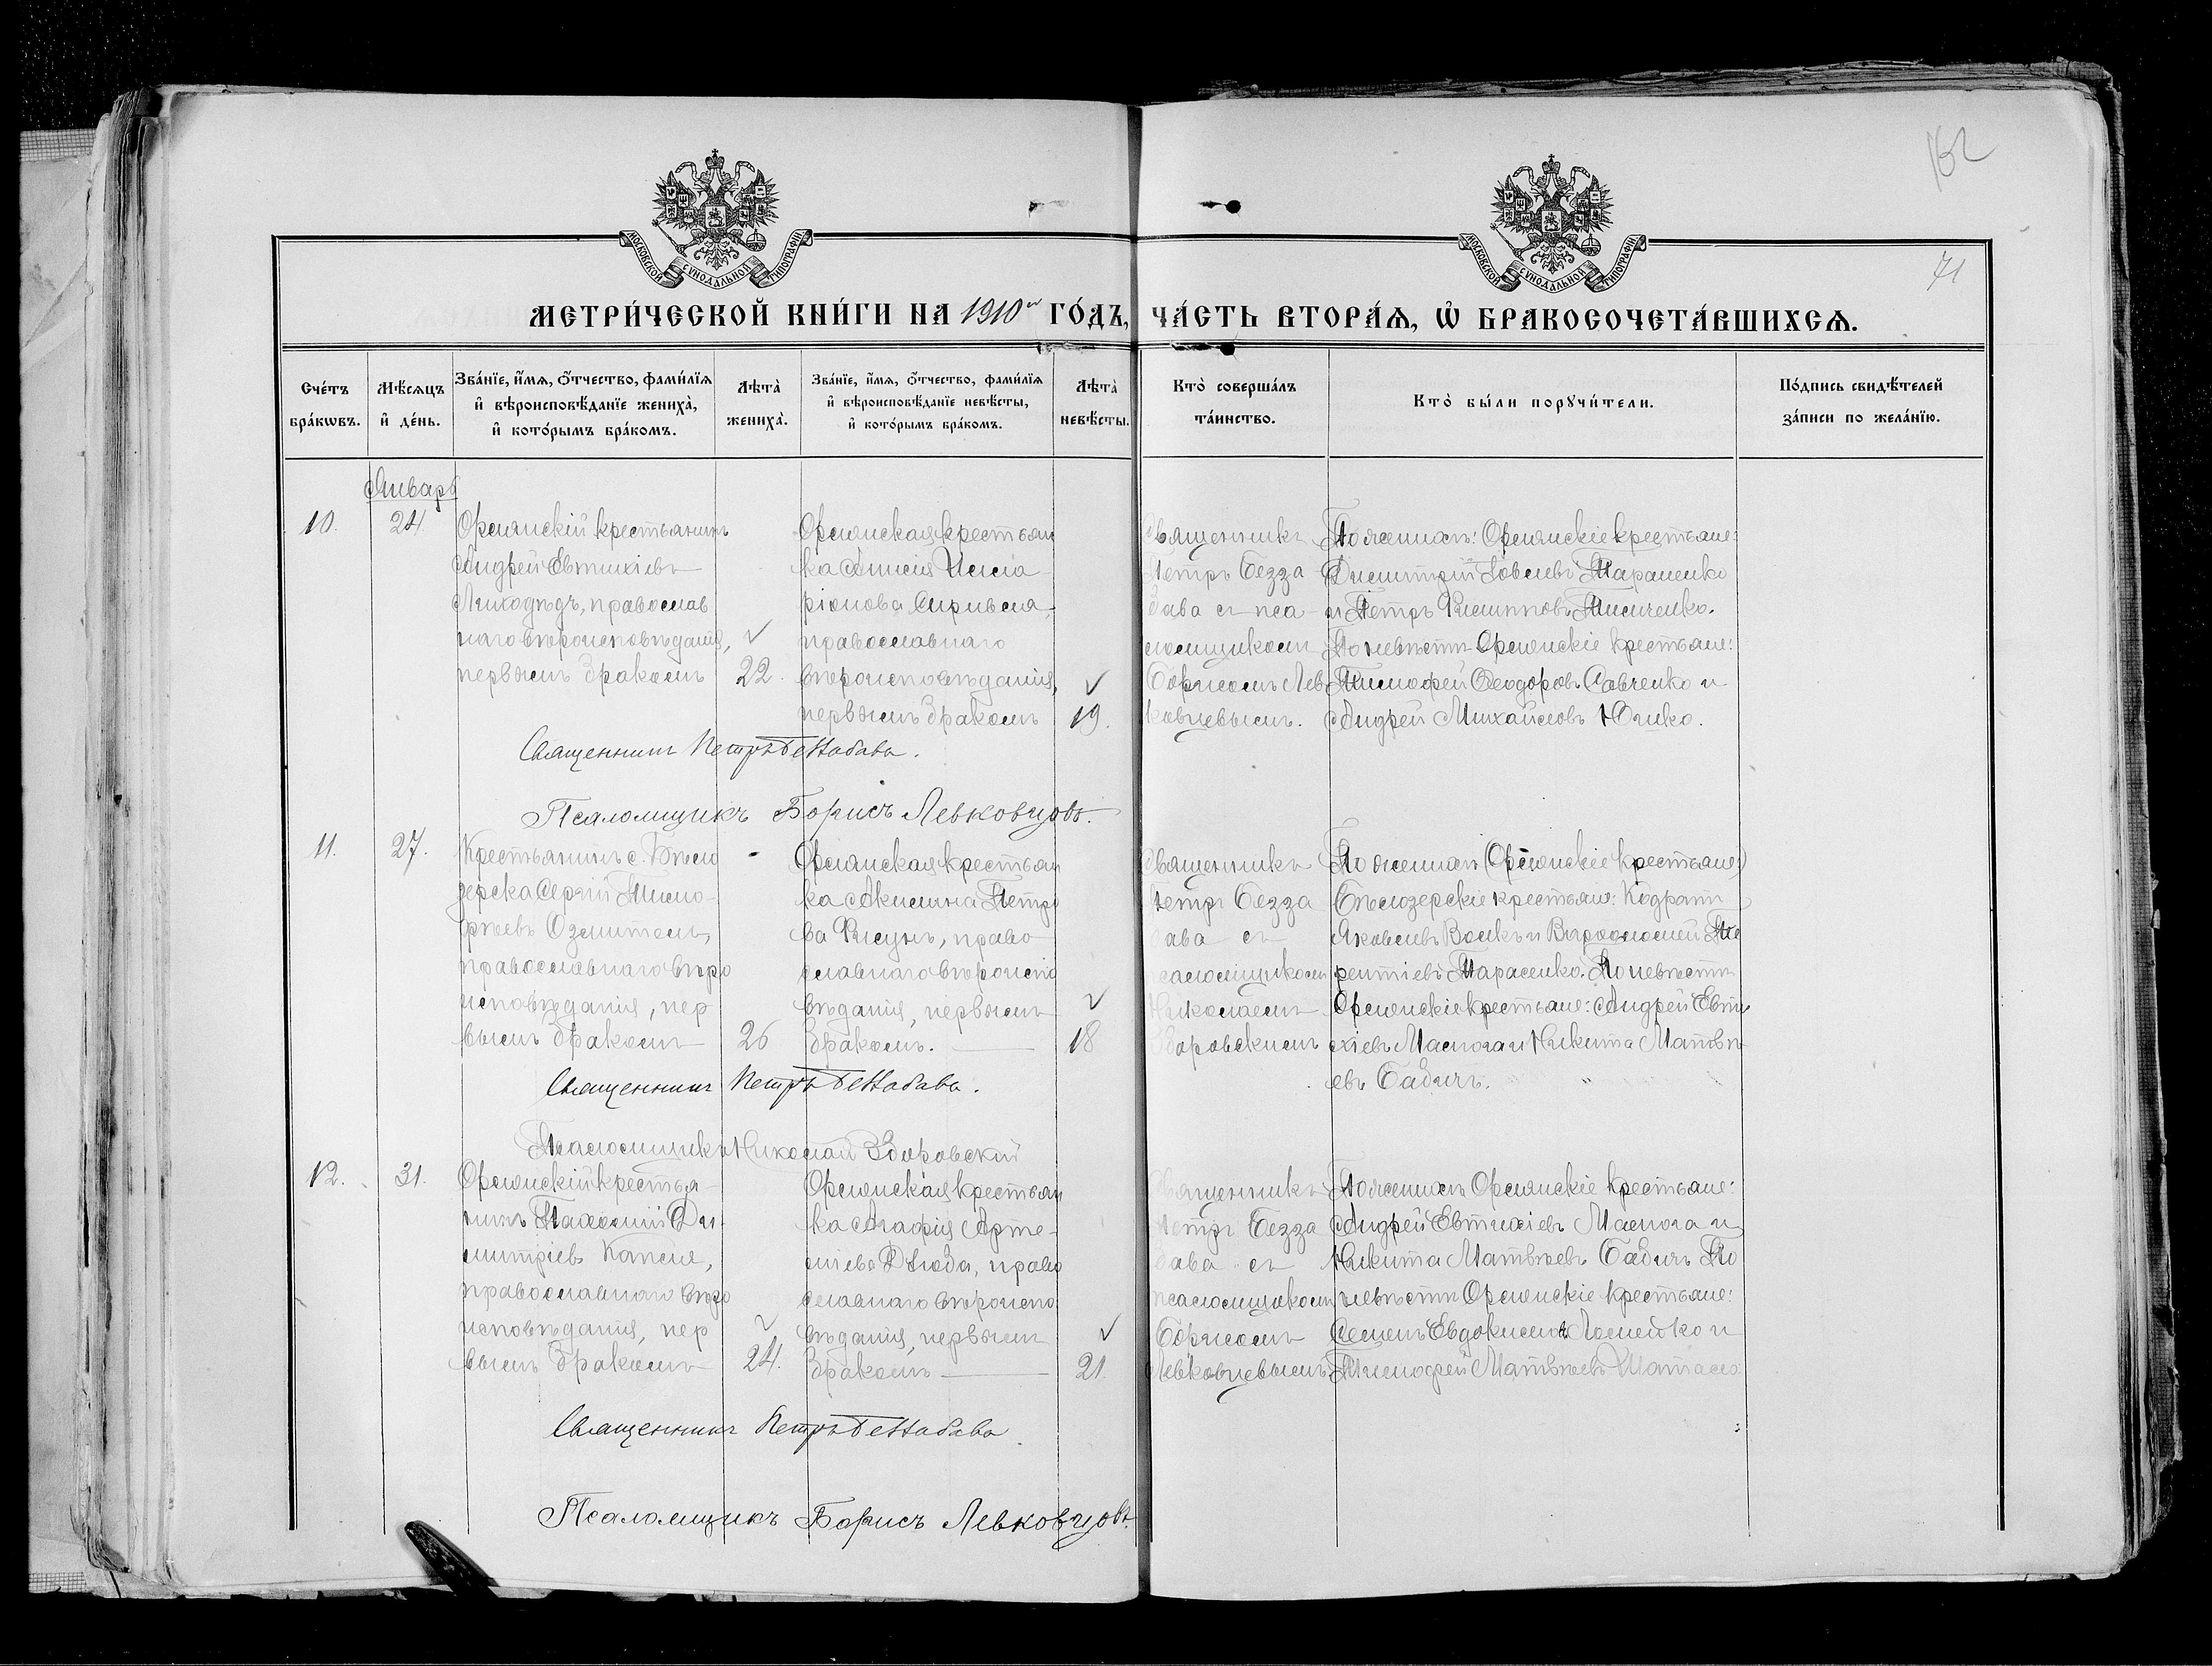 162
71
МОСКОВСКОЙ СѴНОДАЛЬНОЙ ТИПОГРАФІИ
МОСКОВСКОЙ СѴНОДАЛЬНОЙ ТИПОГРАФІИ
МЕТРИ́ЧЕСКОЙ КНИ́ГИ НА 1910 ГО́ДЪ, ЧА́СТЬ ВТОРА́Ѧ, Ѡ҆ БРАКОСОЧЕТА́ВШИХСѦ.
Сче́тъ
бра́кѡвъ.
Мѣ́сѧцъ
и҆ де́нь.
Зва́нїе, и҆́мѧ, ѻ҆́тчество, фами́лїѧ
и҆ вѣроисповѣ́данїе жениха̀,
и҆ кото́рымъ бра́комъ.
Лѣта̀
жениха̀.
Зва́нїе, и҆́мѧ, ѻ҆́тчество, фами́лїѧ
и҆ вѣроисповѣ́данїе невѣ́сты,
и҆ кото́рымъ бра́комъ.
Лѣта̀
невѣ́сты.
Кто̀ соверша́лъ
та́инство.
Кто̀ бы́ли порꙋчи́тели.
По́дпись свидѣ́телей
за́писи по жела́нїю.
Январь
10.
24.
Орлянскій крестьянинъ
Андрей Евтихіевъ
Лиходѣдъ, православ
наго вѣроисповѣданія,
первымъ бракомъ
22.
Орлянская крестьян
ка Анисія Иласі
ріонова
православнаго
вѣроисповѣданія,
первымъ бракомъ
19.
Священникъ
Петръ Безза
бава съ пса
ломщикомъ
Борисомъ Лев
ковцевымъ.
По женихѣ: Орлянскіе крестьяне:
Димитрій Іовлевъ Тараненко
и Петръ Тимченко.
По невѣстѣ Орлянскіе крестьяне:
Тимофей Ѳеодоровъ Савченко и
Андрей Михайловъ Юшко.
Священникъ Петръ Беззабава.
Псаломщикъ Борисъ Левковцовъ.
11.
27.
Крестьянинъ с. Бѣло
зерска Сергій Тимо
фѣевъ
православнаго вѣро
исповѣданія, пер
вымъ бракомъ
26
Орлянская крестьян
ка Акилина Петро
ва право
славнаго вѣроиспо
вѣданія, первымъ
бракомъ.
18
Священникъ
Петръ Безза
бава съ
псаломщикомъ
Николаемъ
Здоровскимъ
По женихѣ (Орлянскіе крестьяне:)
Бѣлозерскіе крестьяне: Кодратъ
Яковлевъ Волкъ и Варѳоломей Те
рентіевъ Тарасенко. По невѣстѣ
Орлянскіе крестьяне: Андрей Евти
хіевъ Маслога и Никита Матвѣ
евъ Бабичъ.
Священникъ Петръ Беззабава.
Псаломщикъ Николай Здоровскій
12.
31.
Орлянскій крестья
нинъ Пахомій Ди
митріевъ
православнаго вѣро
исповѣданія, пер
вымъ бракомъ
24.
Орлянская крестьян
ка Агафія Арте
міева Дзюба, право
славнаго вѣроиспо
вѣданія, первымъ
бракомъ
21.
Священникъ
Петръ Безза
бава съ
псаломщикомъ
Борисомъ
Левковцевымъ.
По женихѣ Орлянскіе крестьяне:
Андрей Евтихіевъ Маслога и
Никита Матвѣевъ Бабичъ По
невѣстѣ Орлянскіе крестьяне:
Семенъ Евдокимовъ Ломейко и
Тимофей Матвѣевъ
Священникъ Петръ Беззабава
Псаломщикъ Борисъ Левковцовъ.